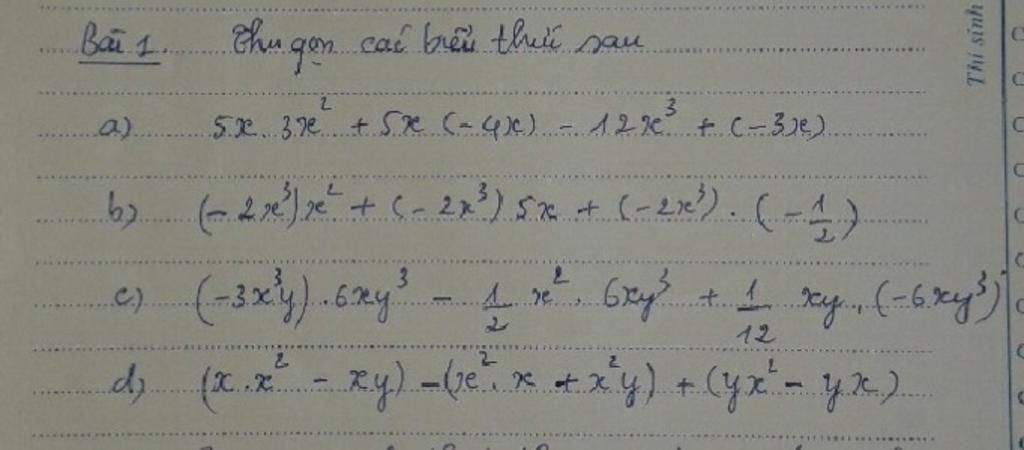 Thí sinh
Bài 1. Thu gọn các biểu thức sau
a) 5x. 3x² + 5x (-4x) - 12x³ + (-3x)
b) (-2x³)x² + (-2x³) 5x + (-2x³) . (-1/2)
c) (-3x³y) .6xy³ - 1/2 x². 6xy³ + 1/12 xy. (-6xy³)
d) (x.x² - xy) -(x². x + x²y) + (yx² - yx)